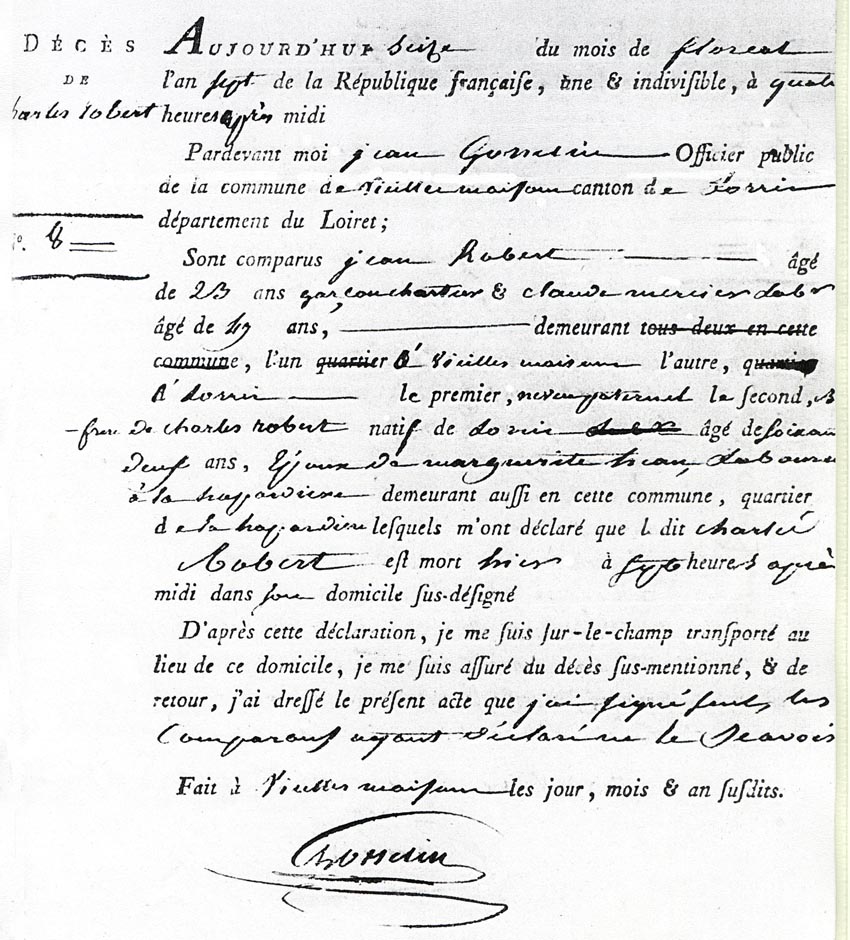 DÉCÈS
DE
harles robert
N°. 8
AUJOURD'HUI Seize du mois de floreal
l'an sept de la République françaiſe, une & indiviſible, à quatr
heures après midi
Pardevant moi jean Gosselin Officier public
de la commune de Vieilles maisons canton de Lorris
département du Loiret;
Sont comparus jean Robert âgé
de 23 ans garçon chartier & claude mercier Lab
âgé de 49 ans, demeurant tous deux en cette
commune, l'un quartier à Vieilles maisons l'autre, quartier
à Lorris le premier, neveu paternel le ſecond, B
frere de charles robert natif de Lorris âgé de soixan
deux ans, Epoux de marguerite Laboure
à la demeurant auſſi en cette commune, quartier
de la leſquels m'ont déclaré que l dit charle
Robert eſt mort hier à sept heures après
midi dans son domicile ſus-déſigné
D'après cette déclaration, je me ſuis ſur-le-champ tranſporté au
lieu de ce domicile, je me ſuis aſſuré du décès ſus-mentionné, & de
retour, j'ai dreſſé le préſent acte que j'ai signé seul, les
Comparans ayant déclaré ne le Scavoir
Fait à Vieilles maisons les jour, mois & an ſuſdits.
Gosselin